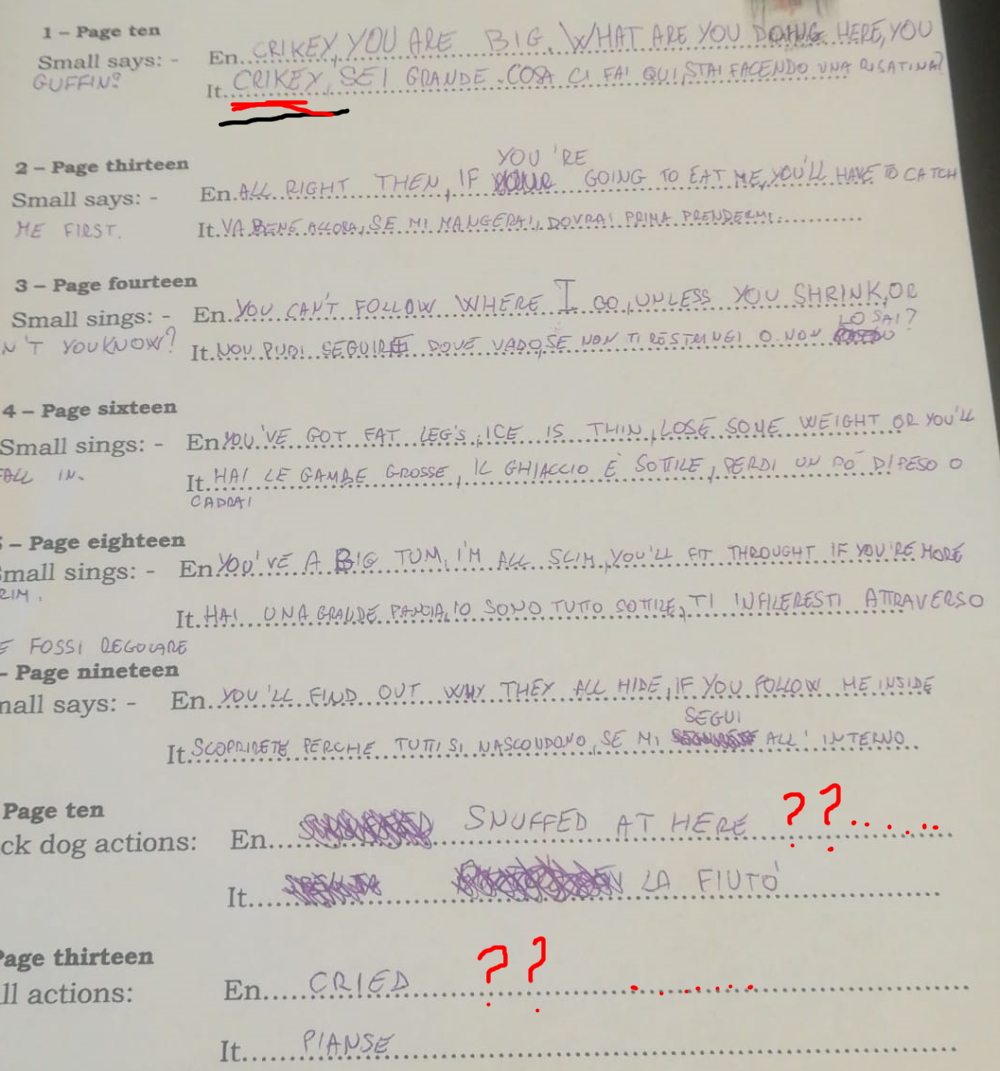 1 – Page ten
Small says: - En. CRIKEY, YOU ARE BIG. WHAT ARE YOU DOING HERE, YOU
GUFFIN?
It. CRIKEY, SEI GRANDE. COSA CI FAI QUI, STAI FACENDO UNA RISATINA?
2 – Page thirteen
YOU'RE
Small says: - En. ALL RIGHT THEN, IF GOING TO EAT ME, YOU'LL HAVE TO CATCH
ME FIRST. It. VA BENE ALLORA, SE MI MANGERAI, DOVRAI PRIMA PRENDERMI
3 – Page fourteen
Small sings: - En. YOU CAN'T FOLLOW WHERE I GO, UNLESS YOU SHRINK, OR
LO SAI?
N'T YOU KNOW? It. NON PUOI SEGUIRE DOVE VADO, SE NON TI RESTRINGI O NON
4 – Page sixteen
Small sings: - En. YOU'VE GOT FAT LEG'S, ICE IS THIN, LOSE SOME WEIGHT OR YOU'LL
FALL IN. It. HAI LE GAMBE GROSSE, IL GHIACCIO È SOTTILE, PERDI UN PÒ DI PESO O
CADRAI
– Page eighteen
mall sings: - En. YOU'VE A BIG TUM, I'M ALL SLIM, YOU'LL FIT THROUGHT IF YOU'RE MORE
RIM.
It. HAI UNA GRANDE PANCIA, IO SONO TUTTO SOTTILE, TI INFILERESTI ATTRAVERSO
E FOSSI REGOLARE
- Page nineteen
mall says: - En. YOU'LL FIND OUT WHY THEY ALL HIDE, IF YOU FOLLOW ME INSIDE
SEGUI
It. SCOPRIRETE PERCHE TUTTI SI NASCONDONO, SE MI ALL' INTERNO
Page ten
ck dog actions: En. SNUFFED AT HERE ??
It. LA FIUTO'
Page thirteen
ll actions: En. CRIED ??
It. PIANSE